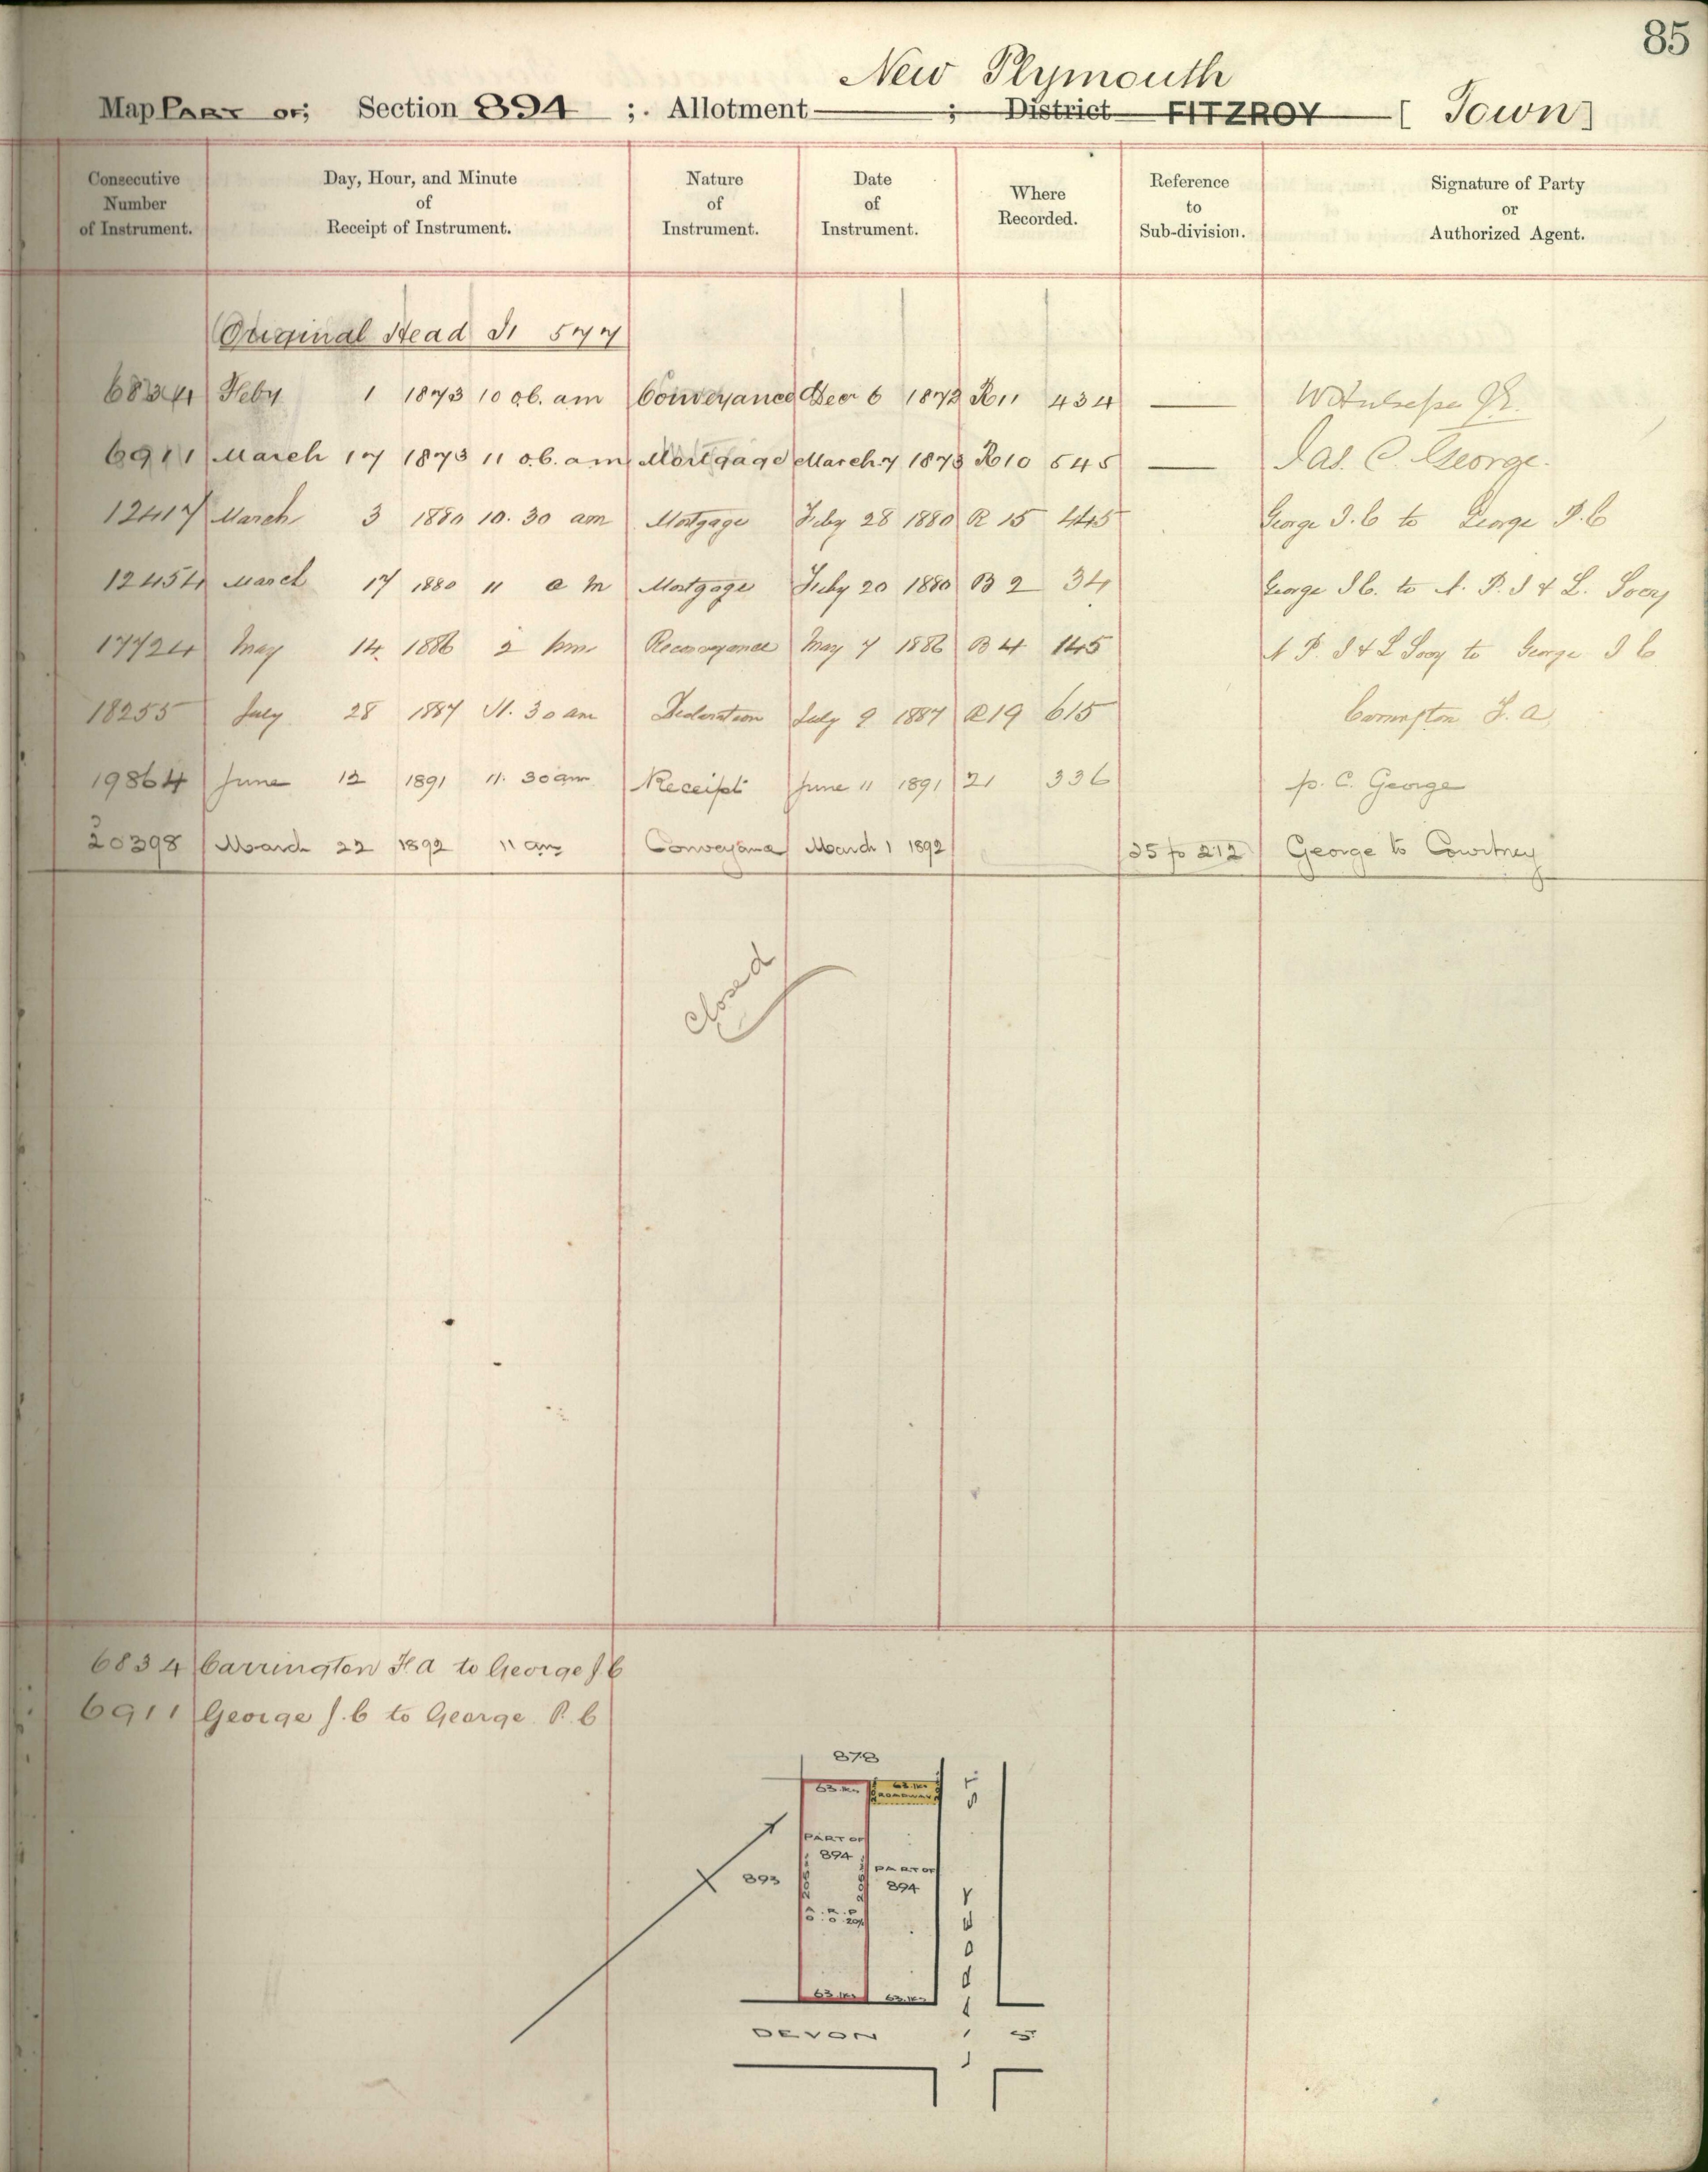 85
New Plymouth
Map PART OF; Section 894 ; Allotment — ; District FITZROY [ Town ]
Consecutive Number of Instrument.
Day, Hour, and Minute of Receipt of Instrument.
Nature of Instrument.
Date of Instrument.
Where Recorded.
Reference to Sub-division.
Signature of Party or Authorized Agent.
Original Head I1 577
6834 Feby 1 1873 10 o.c. am Conveyance Decr 6 1872 R11 434 —
6911 March 17 1873 11 o.c. am Mortgage March 7 1873 R10 545 — Jas. C. George.
12417 March 3 1880 10.30 am Mortgage Feby 28 1880 R 15 445 George J.C to George P.C
12454 March 17 1880 11 a m Mortgage Feby 20 1880 B 2 34 George J C. to
17724 May 14 1886 2 pm Reconveyance May 7 1886 B 4 145 to George J C
18255 July 28 1887 11.30 am Declaration July 9 1887 R19 615 Carrington F. A
19864 June 12 1891 11.30 am Receipt June 11 1891 21 336 p. C. George
20398 March 22 1892 11 am Conveyance March 1 1892 35 fo 212 George to Courtney
Closed
6834 Carrington F.A to George J.C
6911 George J.C to George P.C
878
63.lks 63.lks
ROADWAY
ST.
PART OF
894
PART OF
894
893
A. R. P
0. 0. 20
63.lks 63.lks
DEVON ST